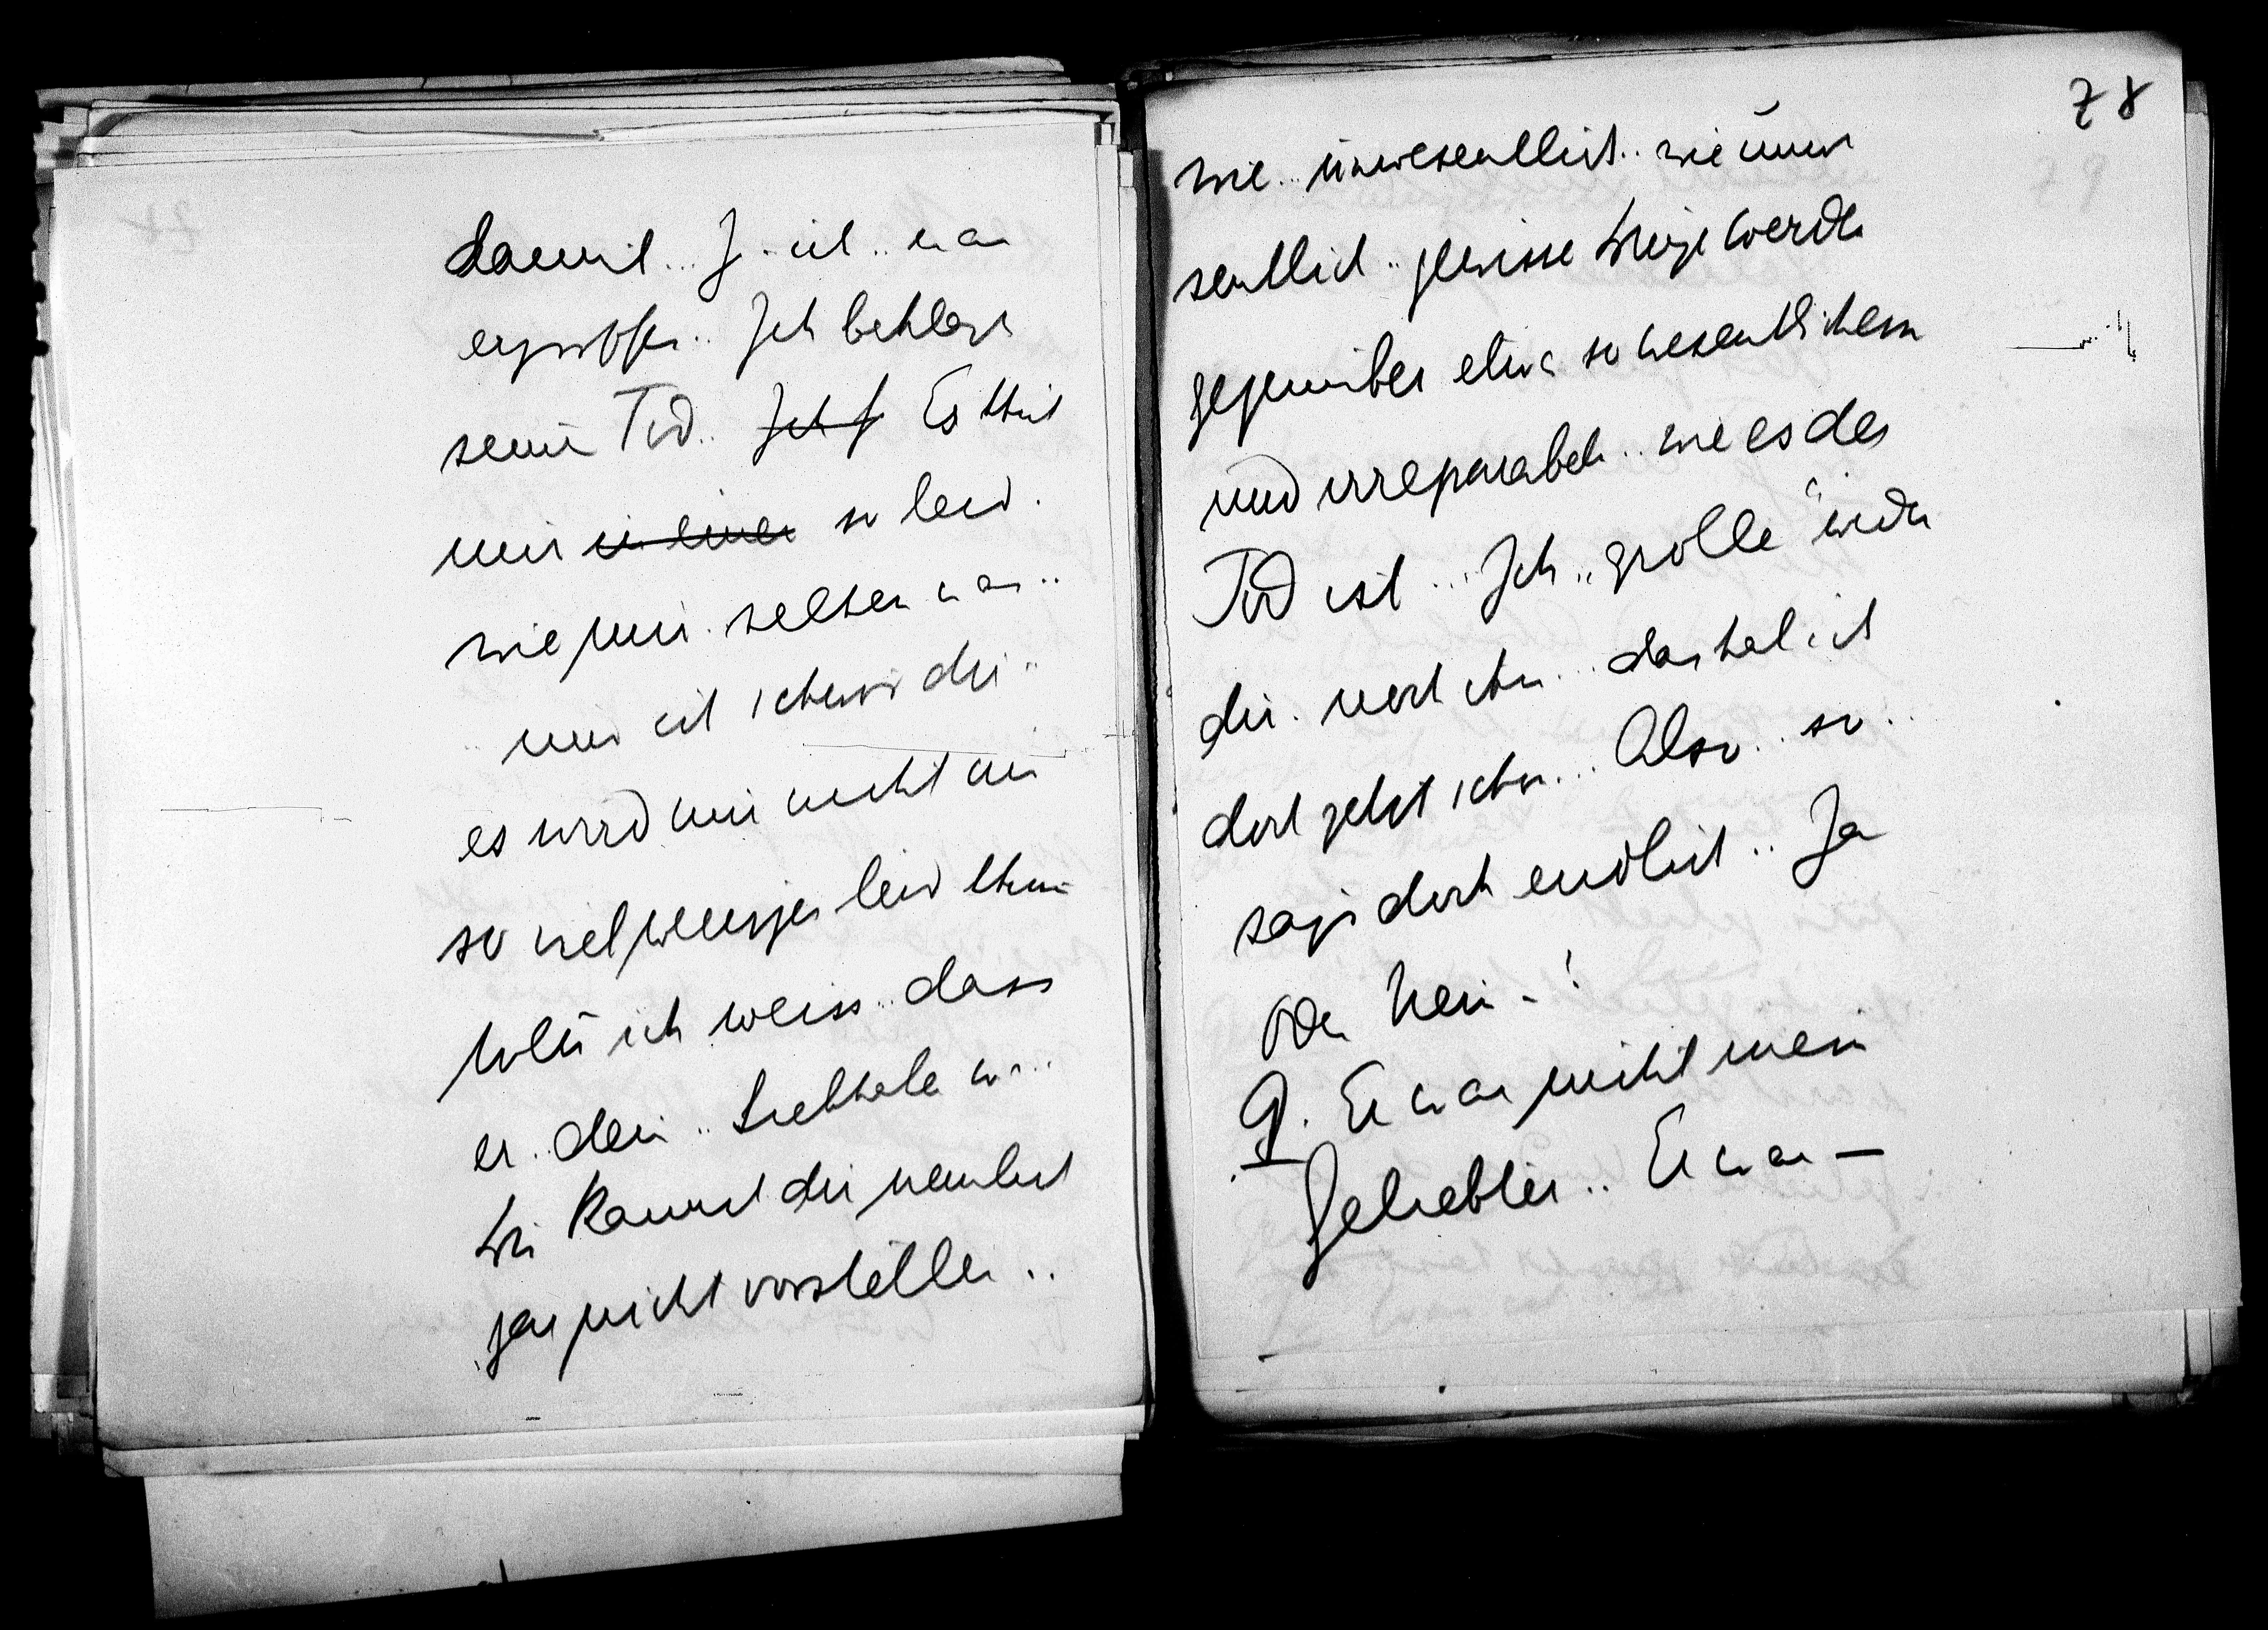 damit... Ja ich.. war
ergriffen.. Ich beklage
seinen Tod.. Ich g Es thut
mir in einer so leid.
wie mir selten war..
.. und ich schwör dir..
es wird mir nicht um
so viel weniger leid thun
wenn ich weiss.. dass
er.. dein.. Liebhaber war...
Du kannst dir nemlich
gar nicht vorstellen..
78
wie.. unwesentlich.. wie unwe
sentlich.. gewisse Dinge werden
gegenüber etwas so wesentlichem
und irreparabeln.. wie es der
Tod ist... Ich „grolle“ weder
dir noch ihm... das hab ich
dort jetzt schon... Also.. so..
sag's doch endlich.. Ja
oder Nein -!
G. Er war nicht mein
Geliebter.. Er war —